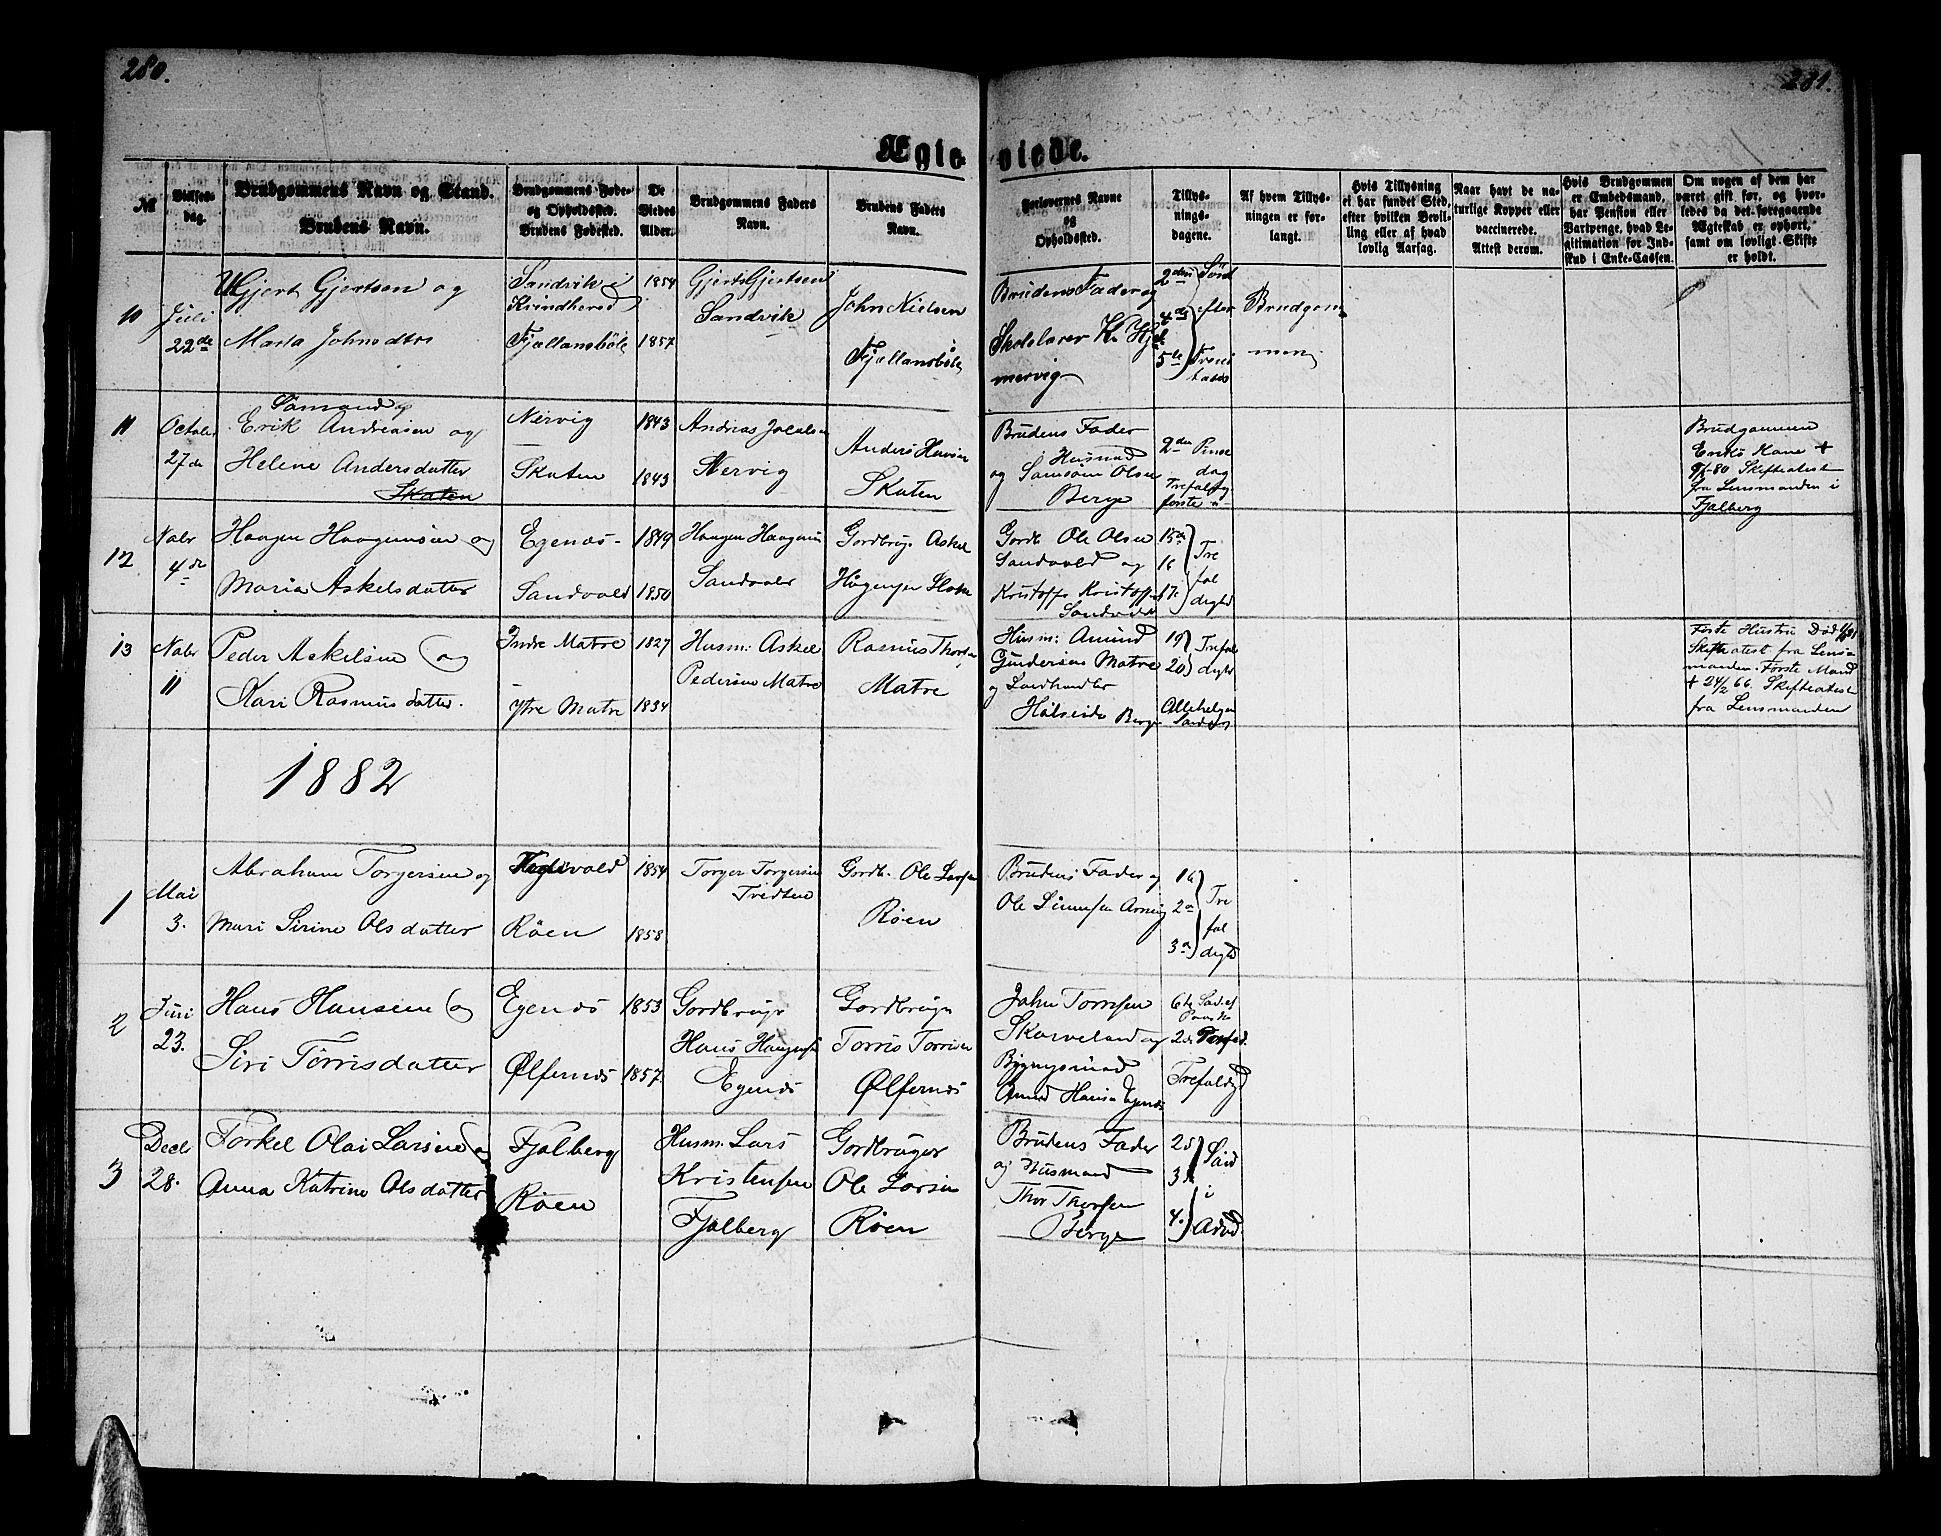 280.
281.
Ægteviede.
№
Vielses-
dag.
Brudgommens Navn og Stand.
Brudens Navn.
Brudgommens Føde-
og Opholdsted.
Brudens Fødested.
De
Viedes
Alder.
Brudgommens Faders
Navn.
Brudens Faders
Navn.
Forlovernes Navne
og
Opholdsted.
Tillys-
nings-
dagene.
Af hvem Tillys-
ningen er for-
langt.
Hvis Tillysning
ei har fundet Sted,
efter hvilken Bevil-
ling eller af hvad
lovlig Aarsag.
Naar havt de na-
turlige Kopper eller
vaccinerede.
Attest derom.
Hvis Brudgommen
er Embedsmand,
har Pension eller
Vartpenge, hvad Le-
gitimation for Ind-
skud i Enke-Cassen.
Om nogen af dem har
været gift før, og hvor-
ledes da det foregaaende
Ægteskab er ophørt,
samt om lovligt Skifte
er holdt.
10
Juli
22de
Gjert Gjertsen og
Marta Johnsdtr
Sandvik i
Kvindherred
Fjællansbøle
1854
1857
Gjert Gjertsen
Sandvik
John Nielsen
Fjællansbøle
Brudens Fader og
Skolelærer K. Hjel
mervig
2den
4de
5te
Sønd
efter
Brudgom-
men
11
Octobr
27de
Sømand
Erik Andreasen og
Helene Andersdatter
Skaten
Nervig
Skaten
1843
1843
Andreas Jacobsen
Nervig
Anders Hansen
Skaten
Brudens Fader
Husmand
og Samson Olsen
Berge
2den Pinse
dag
Trefoldig
første
Brudgommen
Eriks Kone +
80 Skifteatest
fra Lensmanden i
Fjelberg
12
Nobr
4de
Haagen Haagensen og
Maria Askelsdatter
Egenæs
Sandvold
1849
1850
Haagen Haagensen
Sandvold
Gordbrug. Askel
Haagensen
Gordb Ole Olsen
Sandvold og
Kristoffer Kristoffers
15de
16
17.
Tre
fol
dighd
13
Nobr
11
Peder Askelsen og
Kari Rasmusdatter.
Indre Matre
Ytre Matre
1827
1834
Husm: Askel
Pedersen Matre
Rasmus Thors
Matre
Husm: Amund
Gundersen Matre
og Landhandler
Halseide Berge
19
20
Trefol
dighd
Allehelgen
Første Hustru Død
Skifteatest fra Lens-
manden. Første Mand
+ 24/2 66. Skifteatest
fra Lensmanden
1882
1
Mai
3.
Abraham Torgersen og
Mari Sirine Olsdatter
Røen
1854
1858
Torger Torgersen
Tredten
Gordb. Ole Larsen
Røen
Brudens Fader og
Ole Simonsen
1ste
2den
3de
Tre
fol
dighd
2
Juni
23.
Hans Hansen og
Siri Torrisdatter
Egenæs
Ølfernæs
1853
1857
Gordbruger
Hans Haagensen
Egenæs
Gordbruger
Torris Torrisen
Ølfernæs
John Tommsen
Skarveland og
Bygningsmand
Amund Hansen Egenæs
6te
2den
Trefoldighd
3
Decb
28.
Torkel Olai Larsen og
Anna Katrine Olsdatter
Fjelberg
Røen
Husm: Lars
Kristensen
Fjelberg
Gordbruger
Ole Larsen
Røen
Brudens Fader
og Husmand
Thor Thorsen
Berge
2den
3die
4.
Sønd
i
Advd